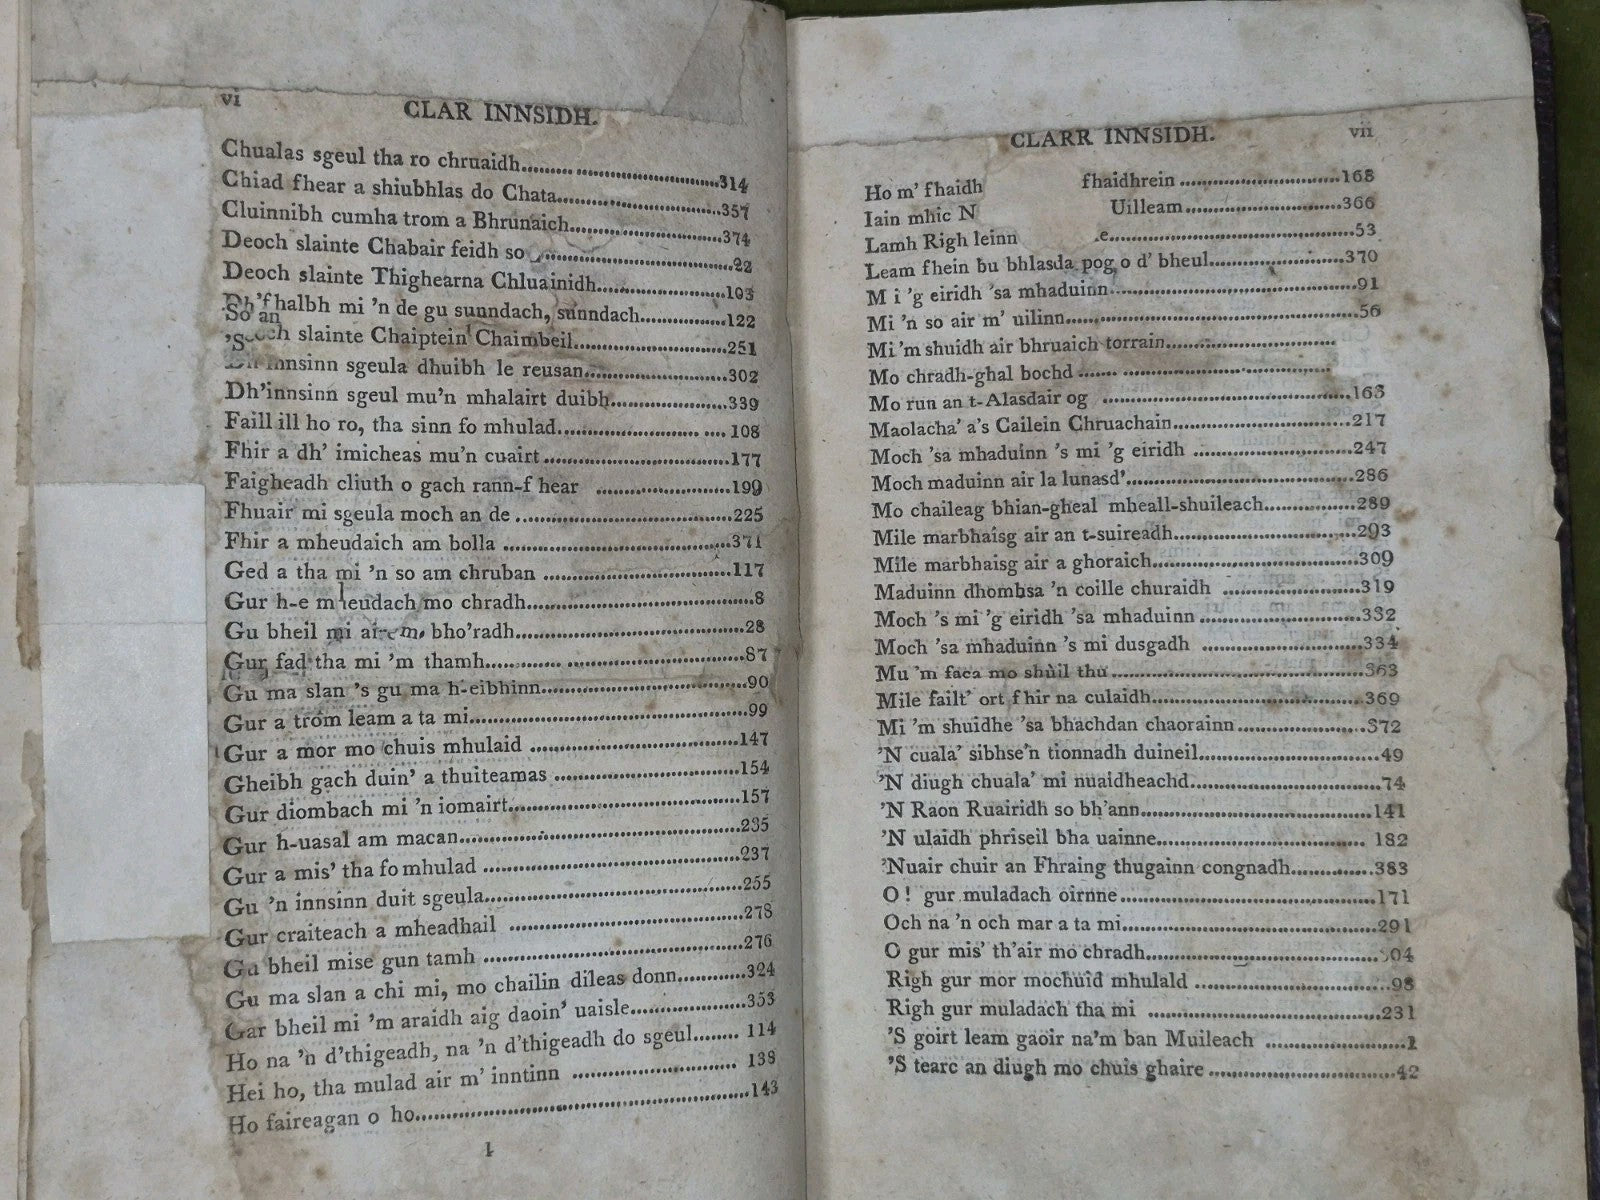 vi
CLAR INNSIDH.
Chualas sgeul tha ro chruaidh....................314
Chiad fhear a shiubhlas do Chata....................357
Cluinnibh cumha trom a Bhrunaich....................374
Deoch slainte Chabair feidh so....................22
Deoch slainte Thighearna Chluainidh....................103
Dh'fhalbh mi 'n de gu sunndach, sunndach....................122
slainte Chaiptein Chaimbeil....................251
innsinn sgeula dhuibh le reusan....................302
Dh'innsinn sgeul mu'n mhalairt duibh....................339
Faill ill ho ro, tha sinn fo mhulad....................108
Fhir a dh' imicheas mu'n cuairt....................177
Faigheadh cliuth o gach rann-fhear....................199
Fhuair mi sgeula moch an de....................225
Fhir a mheudaich am bolla....................371
Ged a tha mi 'n so am chruban....................117
Gur h-e mheudach mo chradh....................8
Gu bheil mi bho'radh....................28
Gur fad tha mi 'm thamh....................87
Gu ma slan 's gu ma h-eibhinn....................90
Gur a trom leam a ta mi....................99
Gur a mor mo chuis mhulaid....................147
Gheibh gach duin' a thuiteamas....................154
Gur diombach mi 'n iomairt....................157
Gur h-uasal am macan....................235
Gur a mis' tha fo mhulad....................237
Gu 'n innsinn duit sgeula....................255
Gur craiteach a mheadhail....................278
Gu bheil mise gun tamh....................276
Gu ma slan a chi mi, mo chailin dileas donn....................324
Gar bheil mi 'm araidh aig daoin' uaisle....................353
Ho na 'n d'thigeadh, na 'n d'thigeadh do sgeul........ 114
Hei ho, tha mulad air m' inntinn .................... 139
Ho faireagan o ho....................143
CLARR INNSIDH.
vii
Ho m' fhaidh fhaidhrein....................168
Iain mhic N Uilleam....................366
Lamh Righ leinn e....................53
Leam fhein bu bhlasda pog o d' bheul....................370
M i 'g eiridh 'sa mhaduinn....................91
Mi 'n so air m' uilinn....................56
Mi 'm shuidh air bhruaich torrain....................
Mo chradh-ghal bochd....................
Mo run an t-Alasdair og....................163
Maolacha' a's Cailein Chruachain....................217
Moch 'sa mhaduinn 's mi 'g eiridh....................247
Moch maduinn air la lunasd'....................286
Mo chaileag bhian-gheal mheall-shuileach....................289
Mile marbhaisg air an t-suireadh....................293
Mile marbhaisg air a ghoraich....................309
Maduinn dhomhsa 'n coille churaidh....................319
Moch 's mi 'g eiridh 'sa mhaduinn....................332
Moch 'sa mhaduinn 's mi dusgadh....................334
Mu 'm faca mo shùil thu....................363
Mile failt' ort fhir na culaidh....................369
Mi 'm shuidhe 'sa bhachdan chaorainn....................372
'N cuala' sibhse'n tionnadh duineil....................49
'N diugh chuala' mi nuaidheachd....................74
'N Raon Ruairidh so bh'ann....................141
'N ulaidh phriseil bha uainne.................... 182
'Nuair chuir an Fhraing thugainn congnadh....................383
O! gur muladach oirnne....................171
Och na 'n och mar a ta mi....................291
O gur mis' th'air mo chradh....................304
Righ gur mor mochuid mhulald....................98
Righ gur muladach tha mi....................231
'S goirt leam gaoir na'm ban Muileach....................1
'S tearc an diugh mo chuis ghaire....................42